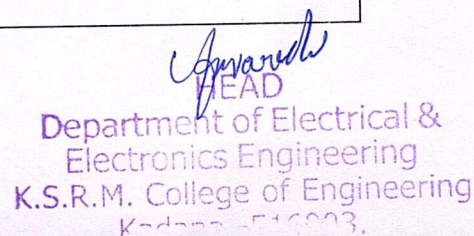 HEAD
Department of Electrical &
Electronics Engineering
K.S.R.M. College of Engineering